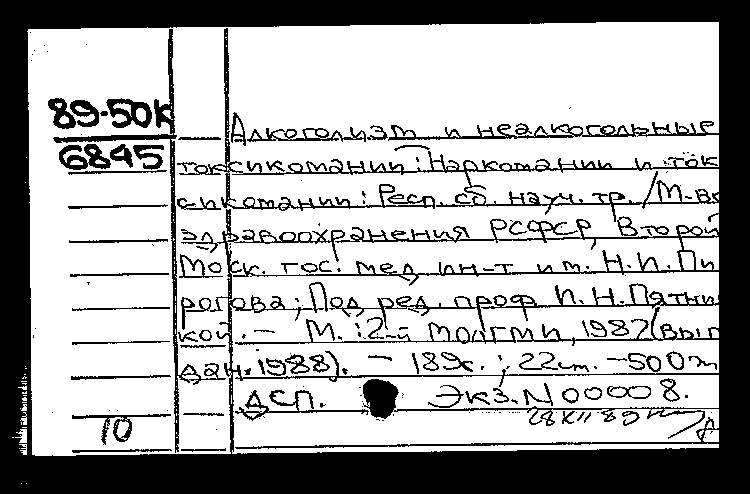 89-50к
6845
Алкоголизм и неалкогольные
токсикомании: Наркомании и ток
сикомании: Респ. сб. науч. тр. / М-во
здравоохранения РСФСР, Второй
Моск. гос. мед. ин-т им. Н.И. Пи
рогова; Под ред. проф. И.Н. Пятниц
кой. - М.: 2-й МОЛГМИ, 1987 (вып
дан. 1988). - 189с.; 22см. - 500э
ДСП. Экз. N 00008.
10
28 XII 89